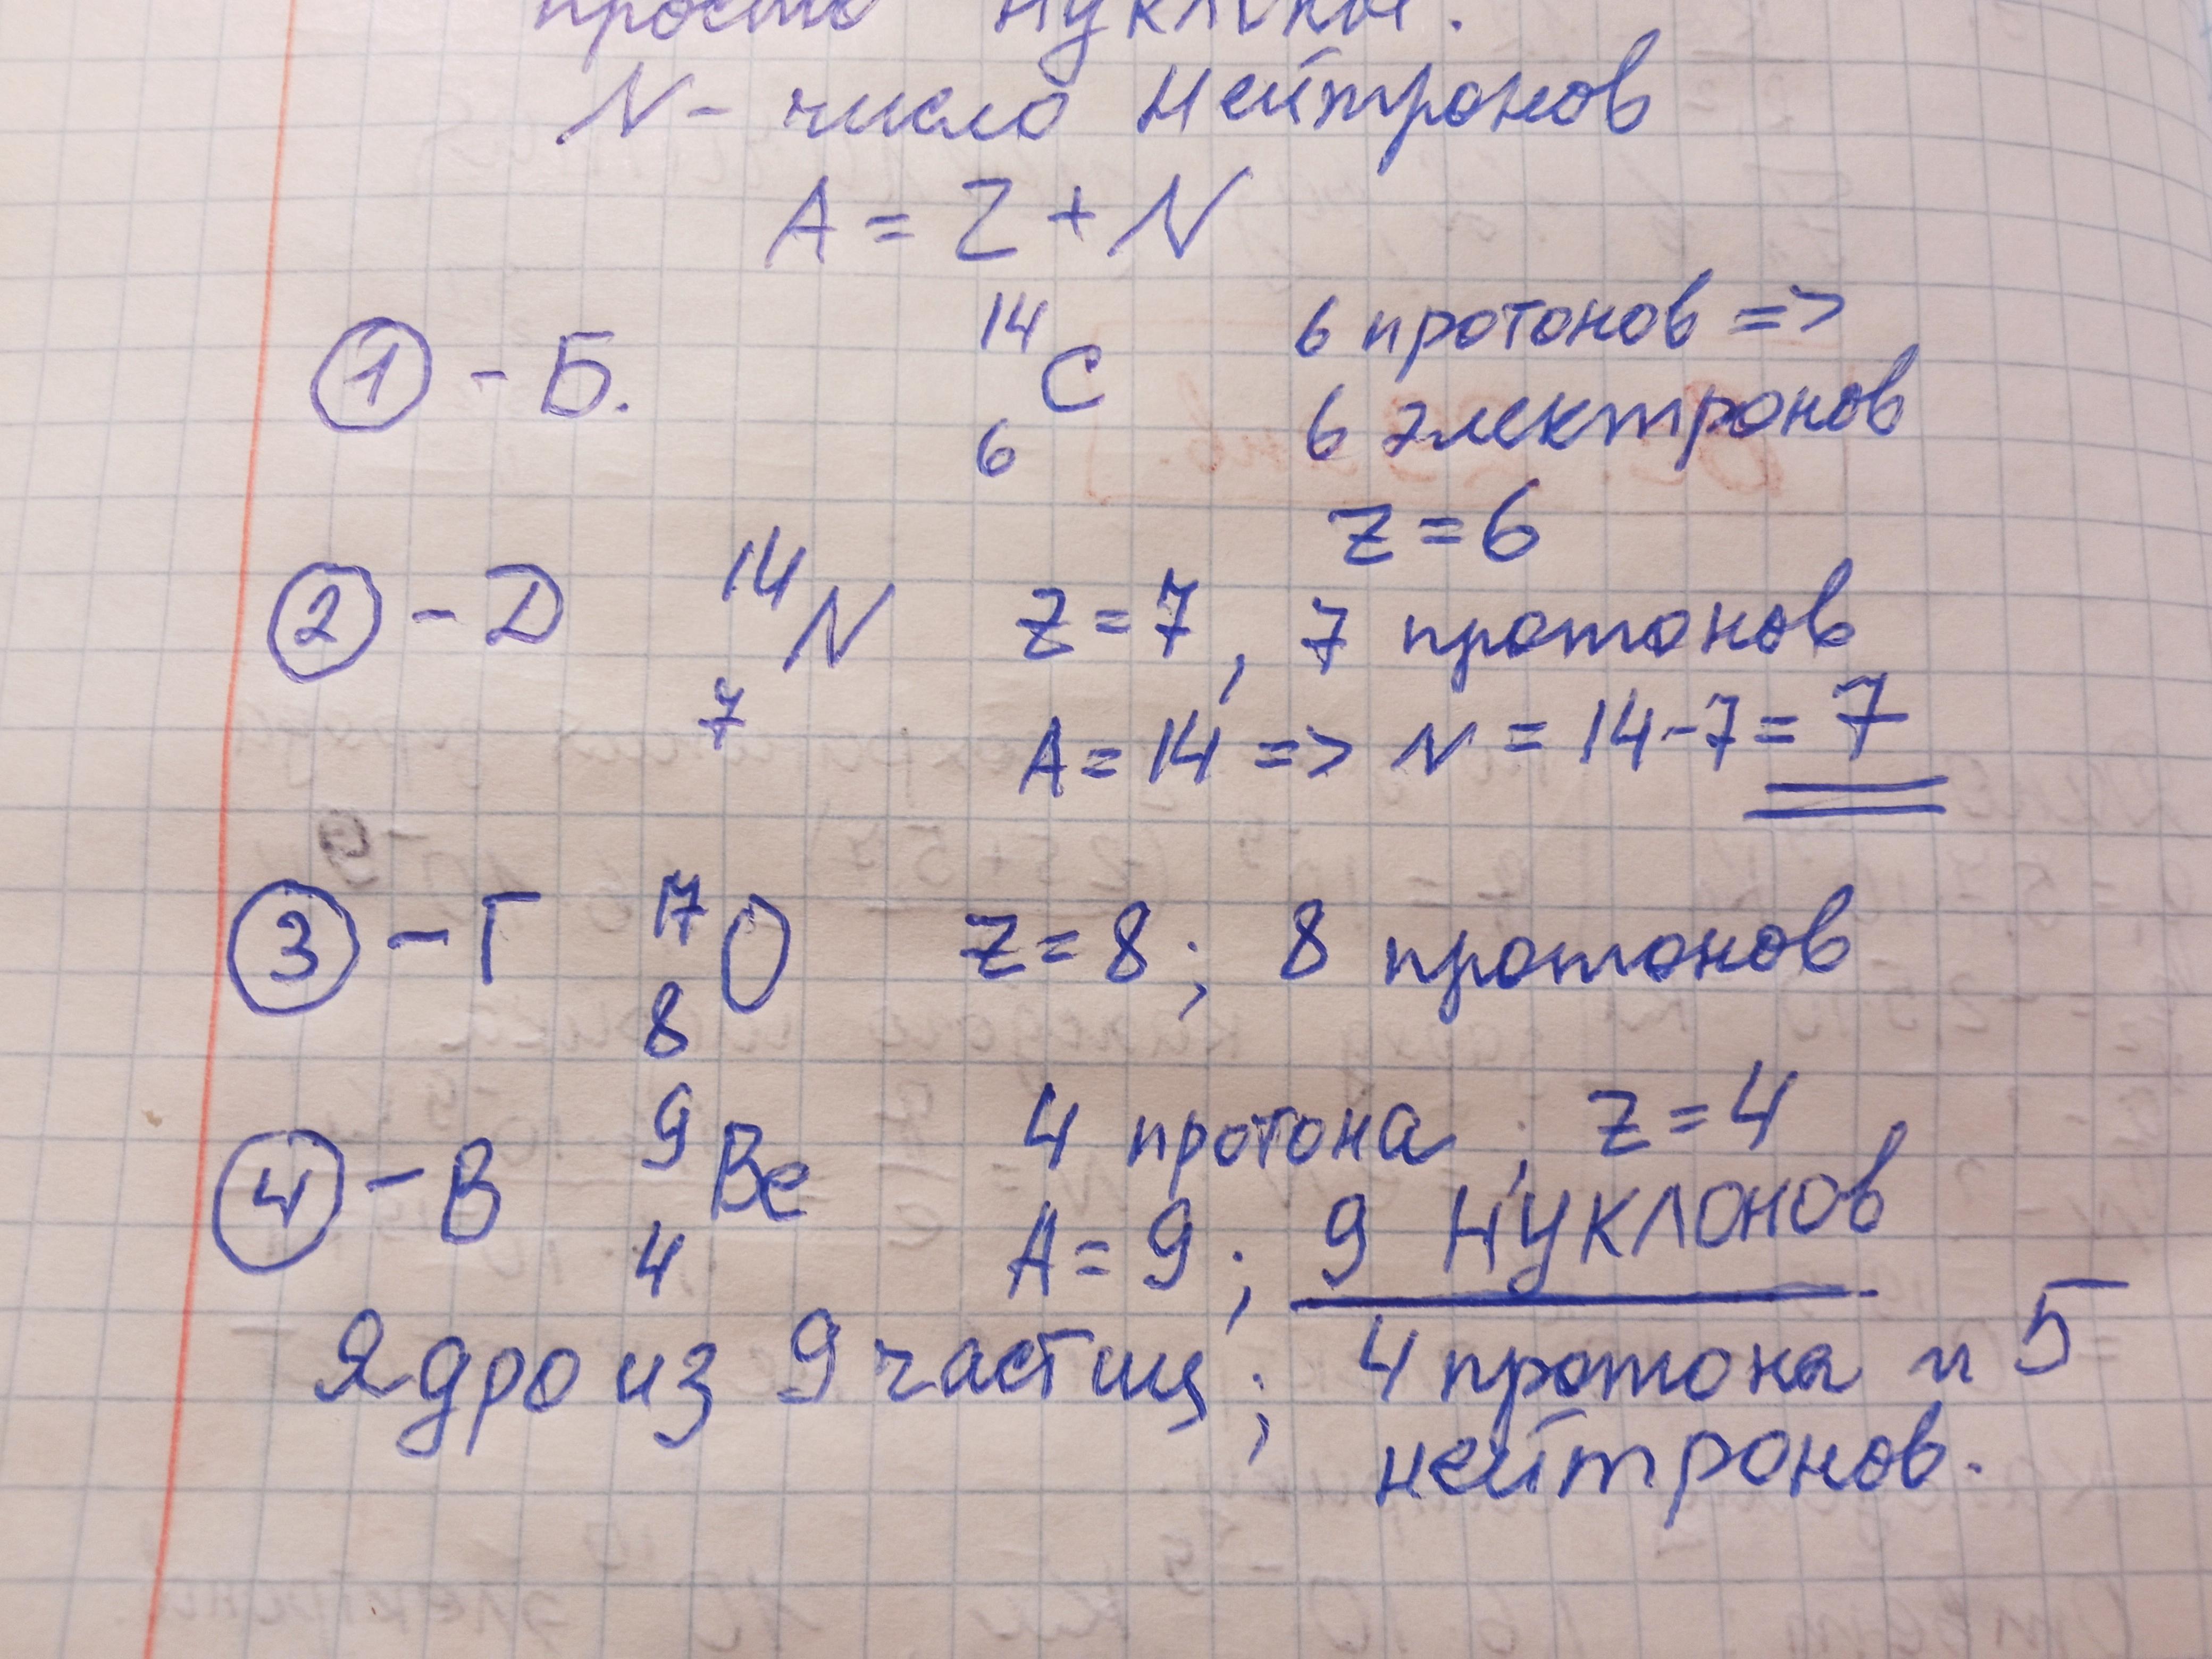 просто нуклоны.
N - число нейтронов
A = Z + N
① - Б. ¹⁴₆C 6 протонов =>
6 электронов
Z = 6
② - Д ¹⁴₇N Z = 7, 7 протонов
A = 14 => N = 14 - 7 = 7
③ - Г ¹⁷₈O Z = 8; 8 протонов
④ - В ⁹₄Be 4 протона, Z = 4
A = 9; 9 нуклонов
Ядро из 9 частиц; 4 протона и 5
нейтронов.